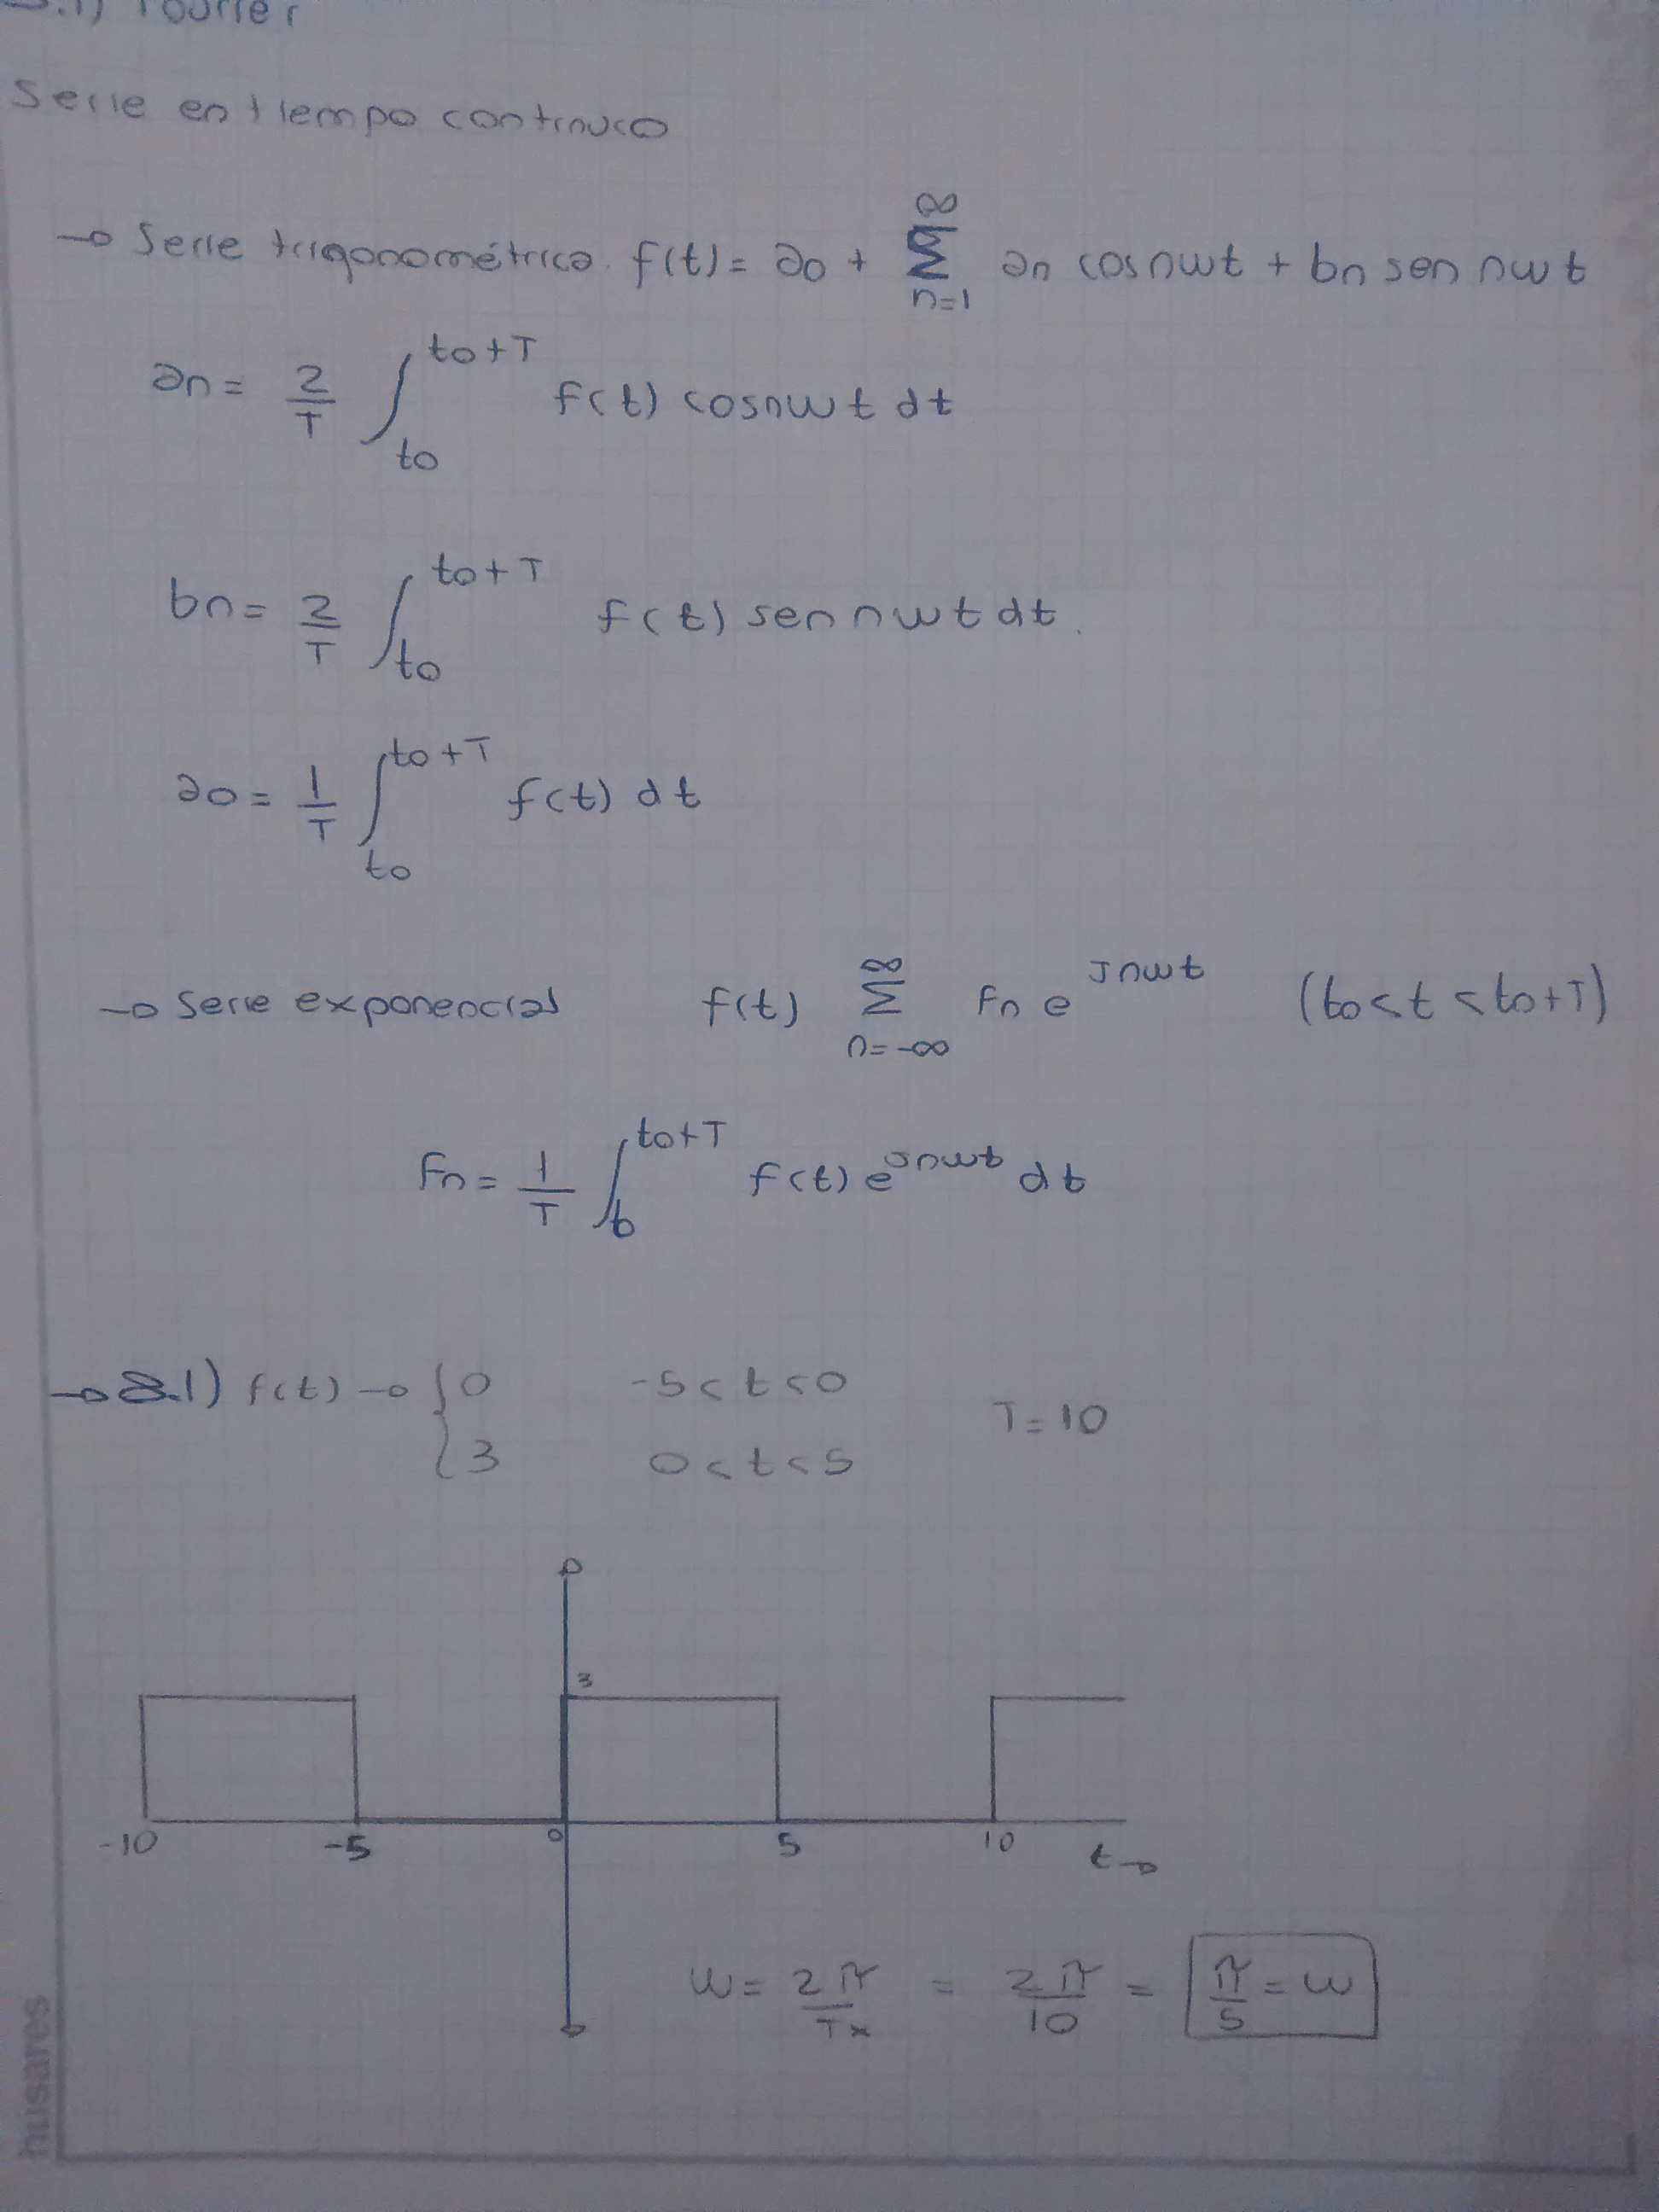 3.1) Fourier
Serie en tiempo continuo
→ Serie trigonométrica. f(t) = a0 + ∑_{n=1}^{∞} an cos nwt + bn sen nwt
an = 2/T ∫_{to}^{to+T} f(t) cosnwt dt
bn = 2/T ∫_{to}^{to+T} f(t) sen nwt dt.
a0 = 1/T ∫_{to}^{to+T} f(t) dt
→ Serie exponencial f(t) ∑_{n=-∞}^{∞} Fn e^{Jnwt} (to<t<to+T)
Fn = 1/T ∫_{to}^{to+T} f(t) e^{Jnwt} dt
→ 3.1) f(t) → { 0 -5<t<0
{ 3 0<t<5
T=10
3
-10 -5 0 5 10 t→
W = 2π/Tx = 2π/10 = π/5 = w
husares